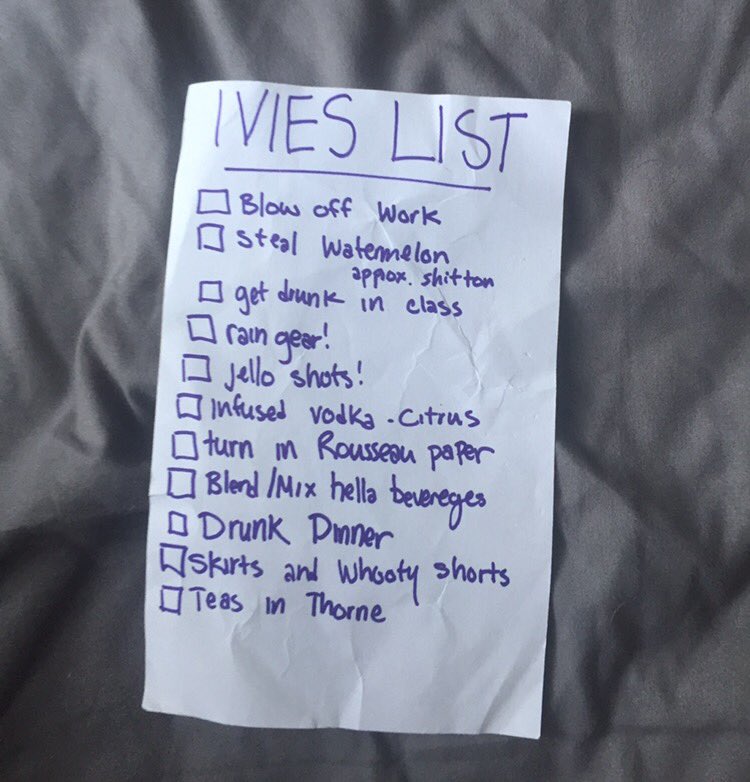 IVIES LIST
Blow off Work
Steal Watermelon
approx. shitton
get drunk in class
rain gear!
jello shots!
Infused vodka - Citrus
turn in Rousseau paper
Blend/Mix hella bevereges
Drunk Dinner
Skirts and Whooty shorts
Teas in Thorne